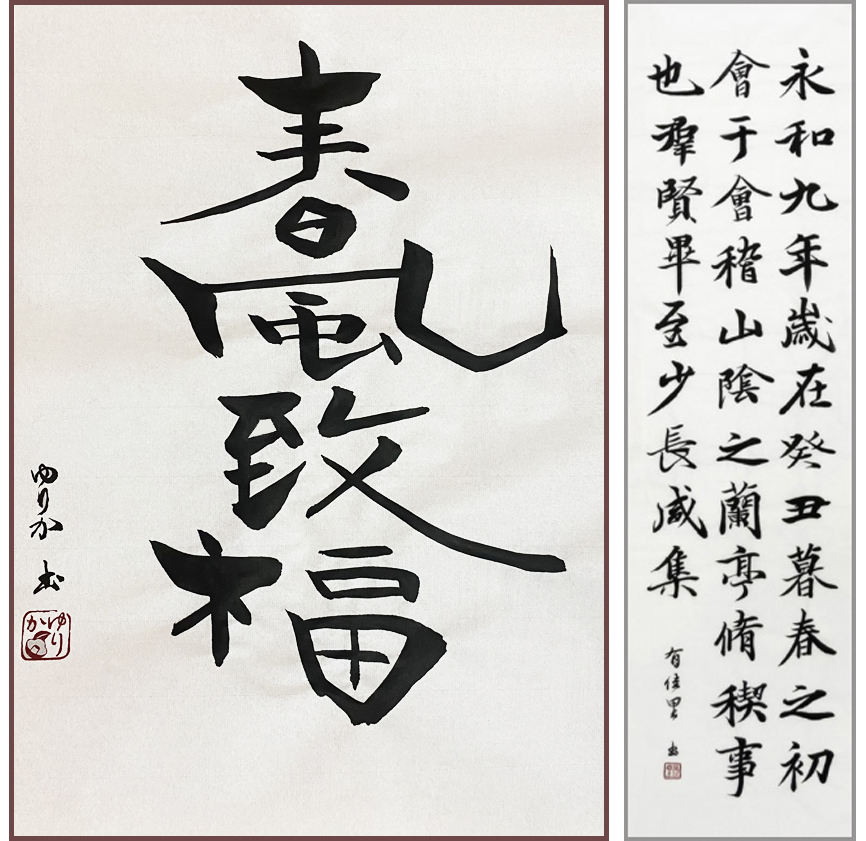 春風致福
ゆりか 書
ゆりか
永和九年歳在癸丑暮春之初
會于會稽山陰之蘭亭脩稧事
也羣賢畢至少長咸集
有佳里 書